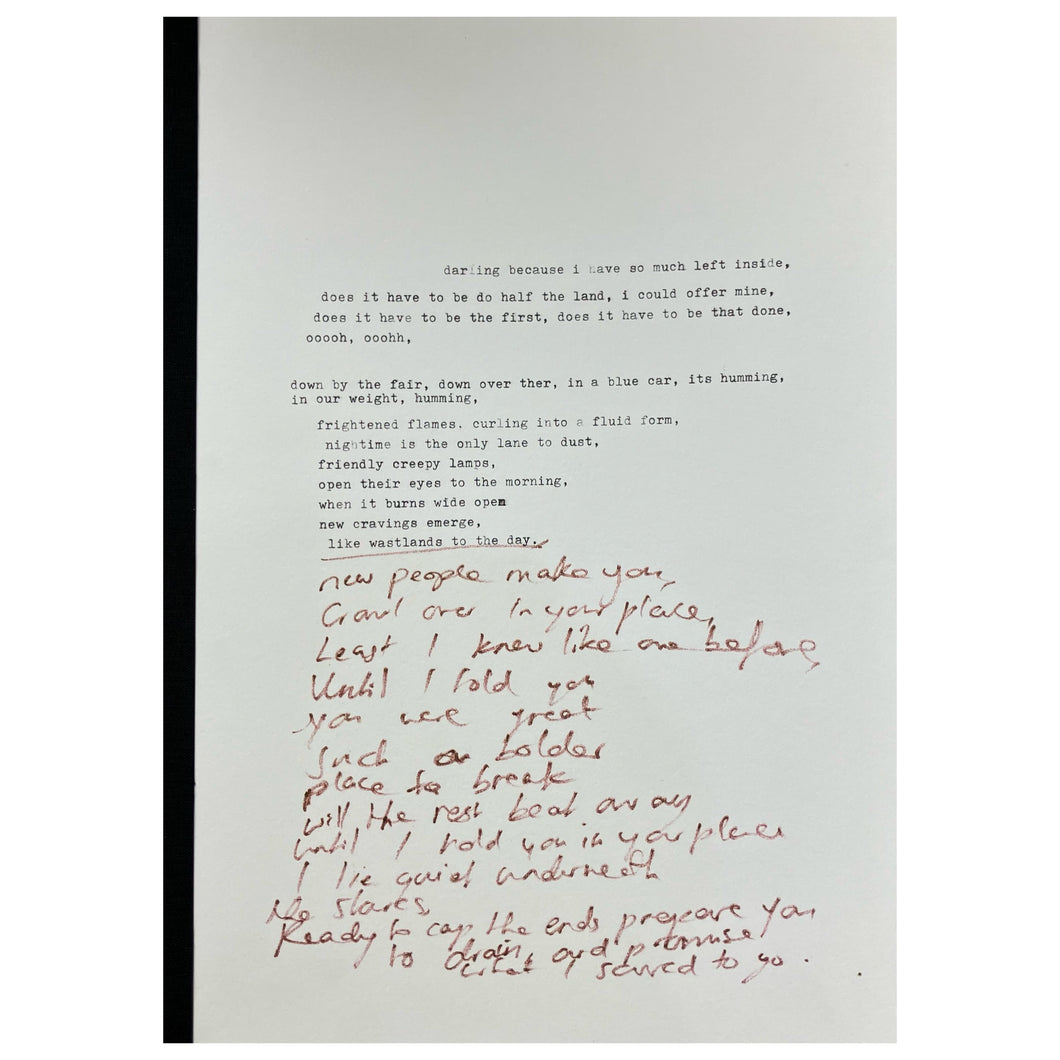 darling because i have so much left inside,
does it have to be do half the land, i could offer mine,
does it have to be the first, does it have to be that done,
ooooh, ooohh,
down by the fair, down over ther, in a blue car, its humming,
in our weight, humming,
frightened flames. curling into a fluid form,
nightime is the only lane to dust,
friendly creepy lamps,
open their eyes to the morning,
when it burns wide open
new cravings emerge,
like wastlands to the day.
new people make you,
Crawl over in your place,
Least I knew like one before,
Until I told you
you were great
Such a bolder
place to break
will the rest beat away
until I hold you in your place
I lie quiet underneath
the stares,
Ready to cap the ends prepare you
to drain and promise
what I scared to go.